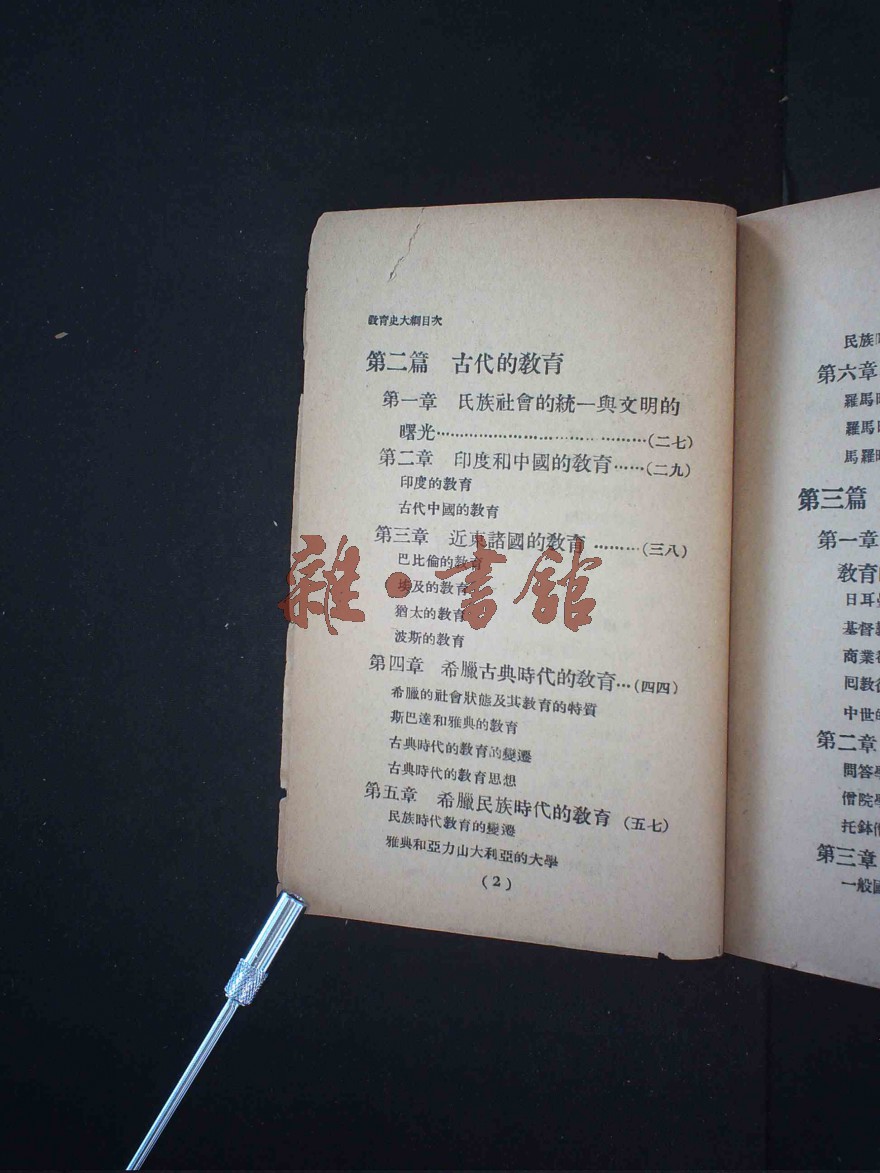 教育史大綱目次
第二篇 古代的教育
第一章 民族社會的統一與文明的
曙光……………………………………(二七)
第二章 印度和中國的教育……(二九)
印度的教育
古代中國的教育
第三章 近東諸國的教育………(三八)
巴比倫的教育
埃及的教育
猶太的教育
波斯的教育
第四章 希臘古典時代的教育…(四四)
希臘的社會狀態及其教育的特質
斯巴達和雅典的教育
古典時代的教育的變遷
古典時代的教育思想
第五章 希臘民族時代的教育 (五七)
民族時代教育的變遷
雅典和亞力山大利亞的大學
(2)
雜·書館
民族
第六章
羅馬
羅馬
馬羅
第三篇
第一章
教育
日耳
基督
商業
回教
中世
第二章
問答
僧院
托鉢
第三章
一般